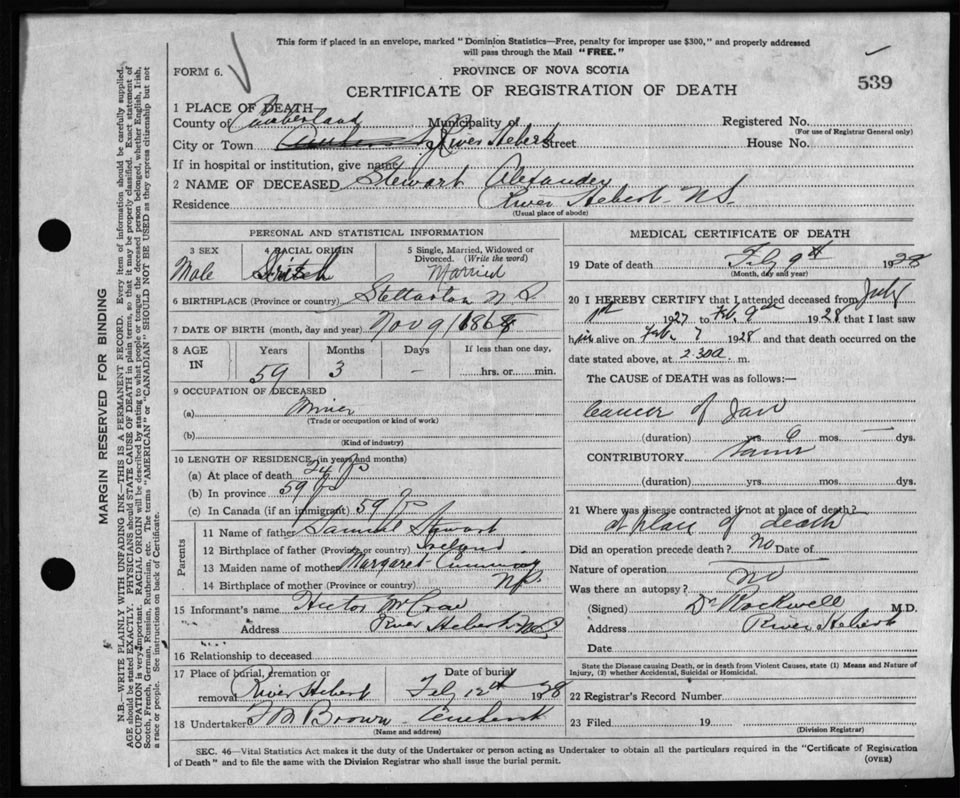 This form if placed in an envelope, marked "Dominion Statistics—Free, penalty for improper use $300," and properly addressed
will pass through the Mail "FREE."
FORM 6.
PROVINCE OF NOVA SCOTIA
CERTIFICATE OF REGISTRATION OF DEATH
539
1 PLACE OF DEATH
County of Cumberland Municipality of Registered No.
(For use of Registrar General only)
City or Town River Hebert Street House No.
If in hospital or institution, give name
2 NAME OF DECEASED Stewart Alexander
Residence River Hebert N.S.
(Usual place of abode)
PERSONAL AND STATISTICAL INFORMATION
3 SEX 4 RACIAL ORIGIN 5 Single, Married, Widowed or
Divorced. (Write the word)
Male Married
6 BIRTHPLACE (Province or country) Stellarton N.S.
7 DATE OF BIRTH (month, day and year) Nov 9
8 AGE
IN
Years Months Days If less than one day,
59 3 — hrs. or min.
9 OCCUPATION OF DECEASED
(a) Miner
(Trade or occupation or kind of work)
(b)
(Kind of industry)
10 LENGTH OF RESIDENCE (in years and months)
(a) At place of death 24 yrs
(b) In province 59 yrs
(c) In Canada (if an immigrant) 59 yrs
Parents
11 Name of father Samuel Stewart
12 Birthplace of father (Province or country) Ireland
13 Maiden name of mother Margaret
14 Birthplace of mother (Province or country)
15 Informant's name Hector McCrae
Address River Hebert N.S.
16 Relationship to deceased
17 Place of burial, cremation or Date of burial
removal River Hebert Feb 12th 1928
18 Undertaker Brown Amherst
(Name and address)
MEDICAL CERTIFICATE OF DEATH
19 Date of death Feb 9th 1928
(Month, day and year)
20 I HEREBY CERTIFY that I attended deceased from July
1st 1927 to Feb. 9th 1928 that I last saw
him alive on Feb. 7 1928 and that death occurred on the
date stated above, at 2.30a. m.
The CAUSE of DEATH was as follows:—
Cancer of Jaw
(duration) yrs. 6 mos. — dys.
CONTRIBUTORY
(duration) yrs. mos. dys.
21 Where was disease contracted if not at place of death?
at place of death
Did an operation precede death? No Date of
Nature of operation
Was there an autopsy? No
(Signed) Dr Rockwell M.D.
Address River Hebert
Date
State the Disease causing Death, or in death from Violent Causes, state (1) Means and Nature of
Injury, (2) whether Accidental, Suicidal or Homicidal.
22 Registrar's Record Number
23 Filed 19
(Division Registrar)
SEC. 46—Vital Statistics Act makes it the duty of the Undertaker or person acting as Undertaker to obtain all the particulars required in the "Certificate of Registration
of Death" and to file the same with the Division Registrar who shall issue the burial permit.
(OVER)
MARGIN RESERVED FOR BINDING
N.B.—WRITE PLAINLY WITH UNFADING INK—THIS IS A PERMANENT RECORD. Every item of information should be carefully supplied.
AGE should be stated EXACTLY. PHYSICIANS should STATE CAUSE OF DEATH in plain terms, so that it may be properly classified. Exact statement of
OCCUPATION is very important. RACIAL ORIGIN will be described by stating to what people or tongue the deceased person belonged, whether English, Irish,
Scotch, French, German, Russian, Ruthenian, etc. The terms "AMERICAN" or "CANADIAN" SHOULD NOT BE USED as they express citizenship but not
a race or people. See instructions on back of Certificate.